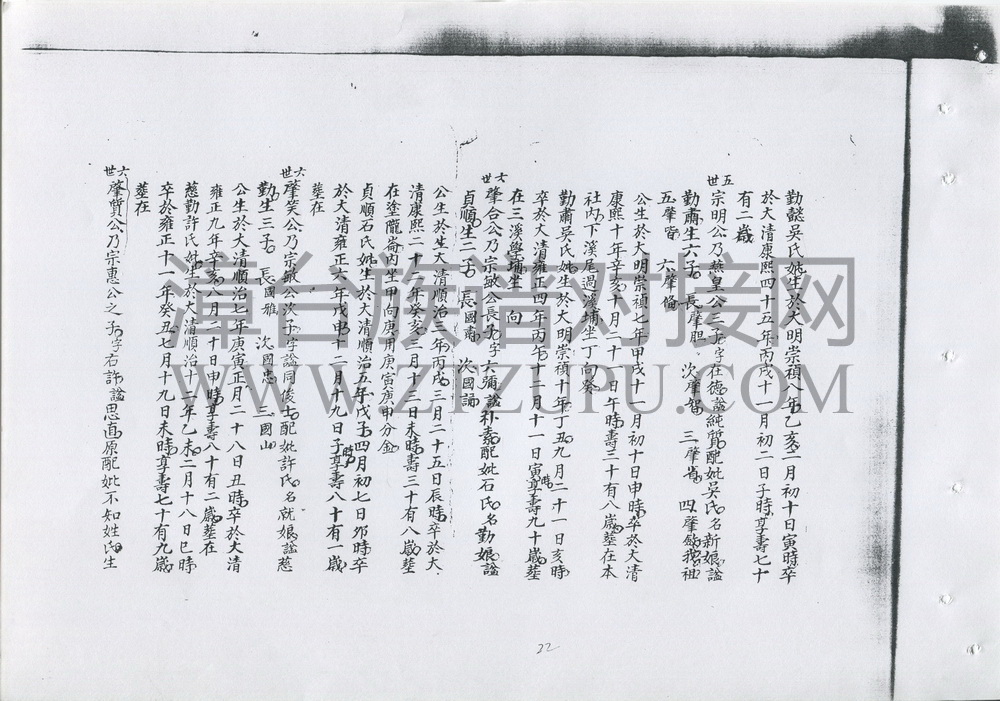 勤懿吳氏妣生於大明崇禎八年乙亥二月初十日寅時卒
於大清康熙四十五年丙戌十二月初二日子時享壽七十
有二歲
五世
宗明公乃燕皇公三子也字在德謚純質配妣吳氏名新娘謚
勤肅生六子 長肇胆 次肇智 三肇省 四肇 我祖
五肇皆 六肇脩
公生於大明崇禎七年甲戌十一月初十日申時卒於大清
康熙十年辛亥十月二十日午時壽三十有八歲葬在本
社內下溪尾過 埔坐丁向癸
勤肅吳氏妣生於大明崇禎十年丁丑九月二十一日亥時
卒於大清雍正四年丙午十二月十一日寅時享壽九十歲葬
在三溪學埔坐 向
六世
肇合公乃宗敏公長子也字六彌謚朴素配妣石氏名勤娘謚
貞順生二子 長國甯 次國誦
公生於生大清順治三年丙戌三月二十五日辰時卒於大
清康熙二十二年癸亥三月十三日未時壽三十有八歲葬
在塗隴崙內坐甲向庚用庚寅庚申分金
貞順石氏妣生於大清順治五年戊子四月初七日夘時卒
於大清雍正六年戊申十二月十九日子時享壽八十有一歲
葬在
六世
肇笑公乃宗敏公次子也字謚同俊士配妣許氏名就娘謚慈
勤生三子 長國雅 次國忠 三國山
公生於大清順治七年庚寅正月二十八日丑時卒於大清
雍正九年辛亥八月二十日申時享壽八十有二歲葬在
慈勤許氏妣生於大清順治十二年乙未二月十八日巳時
卒於雍正十一年癸丑七月十九日未時享壽七十有九歲
葬在
六世
肇質公乃宗惠公之子也字右許謚思直原配妣不知姓氏生
32
漳台族谱对接网
WWW.ZTZUPU.COM